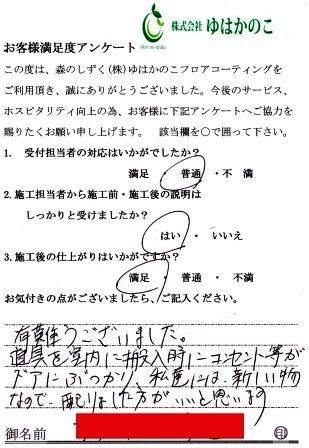 株式会社 ゆはかのこ
お客様満足度アンケート
この度は、森のしずく(株)ゆはかのこフロアコーティングを
ご利用頂き、誠にありがとうございました。今後のサービス、
ホスピタリティ向上の為、お客様に下記アンケートへご協力を
賜りたくお願い申し上げます。 該当欄を○で囲って下さい。
1. 受付担当者の対応はいかがでしたか?
満足 ・ 普通 ・ 不満
2. 施工担当者から施工前・施工後の説明は
しっかりと受けましたか?
はい ・ いいえ
3. 施工後の仕上がりはいかがですか?
満足 ・ 普通 ・ 不満
お気付きの点がございましたら、ご記入ください。
有難うございました。
道具を室内に搬入時にコンセント等が
ドアにぶつかり、私達には、新しい物
なので、配りました方がいいと思います
御名前 印